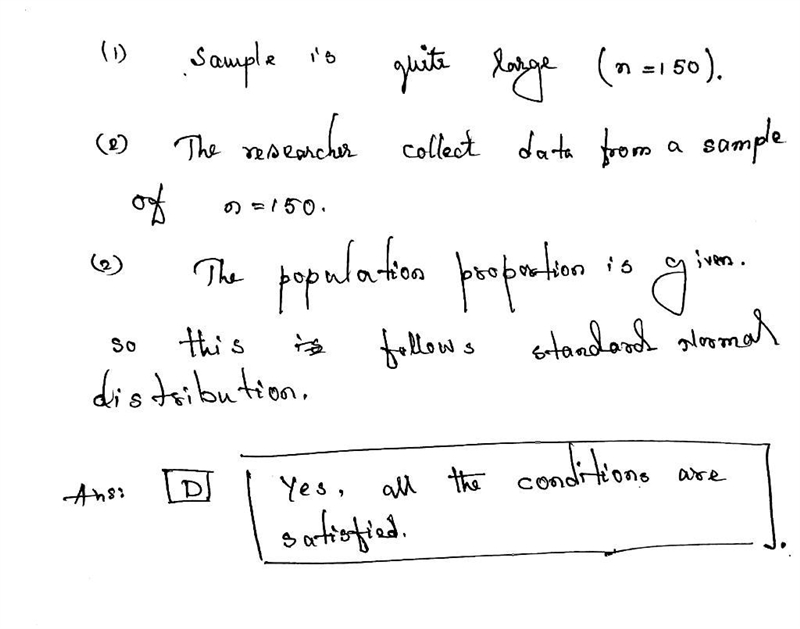 (1) Sample is quite large (n=150).
(2) The researcher collect data from a sample
of n=150.
(2) The population proportion is given.
so this is follows standard Normal
distribution.
Ans: D Yes, all the conditions are
satisfied.